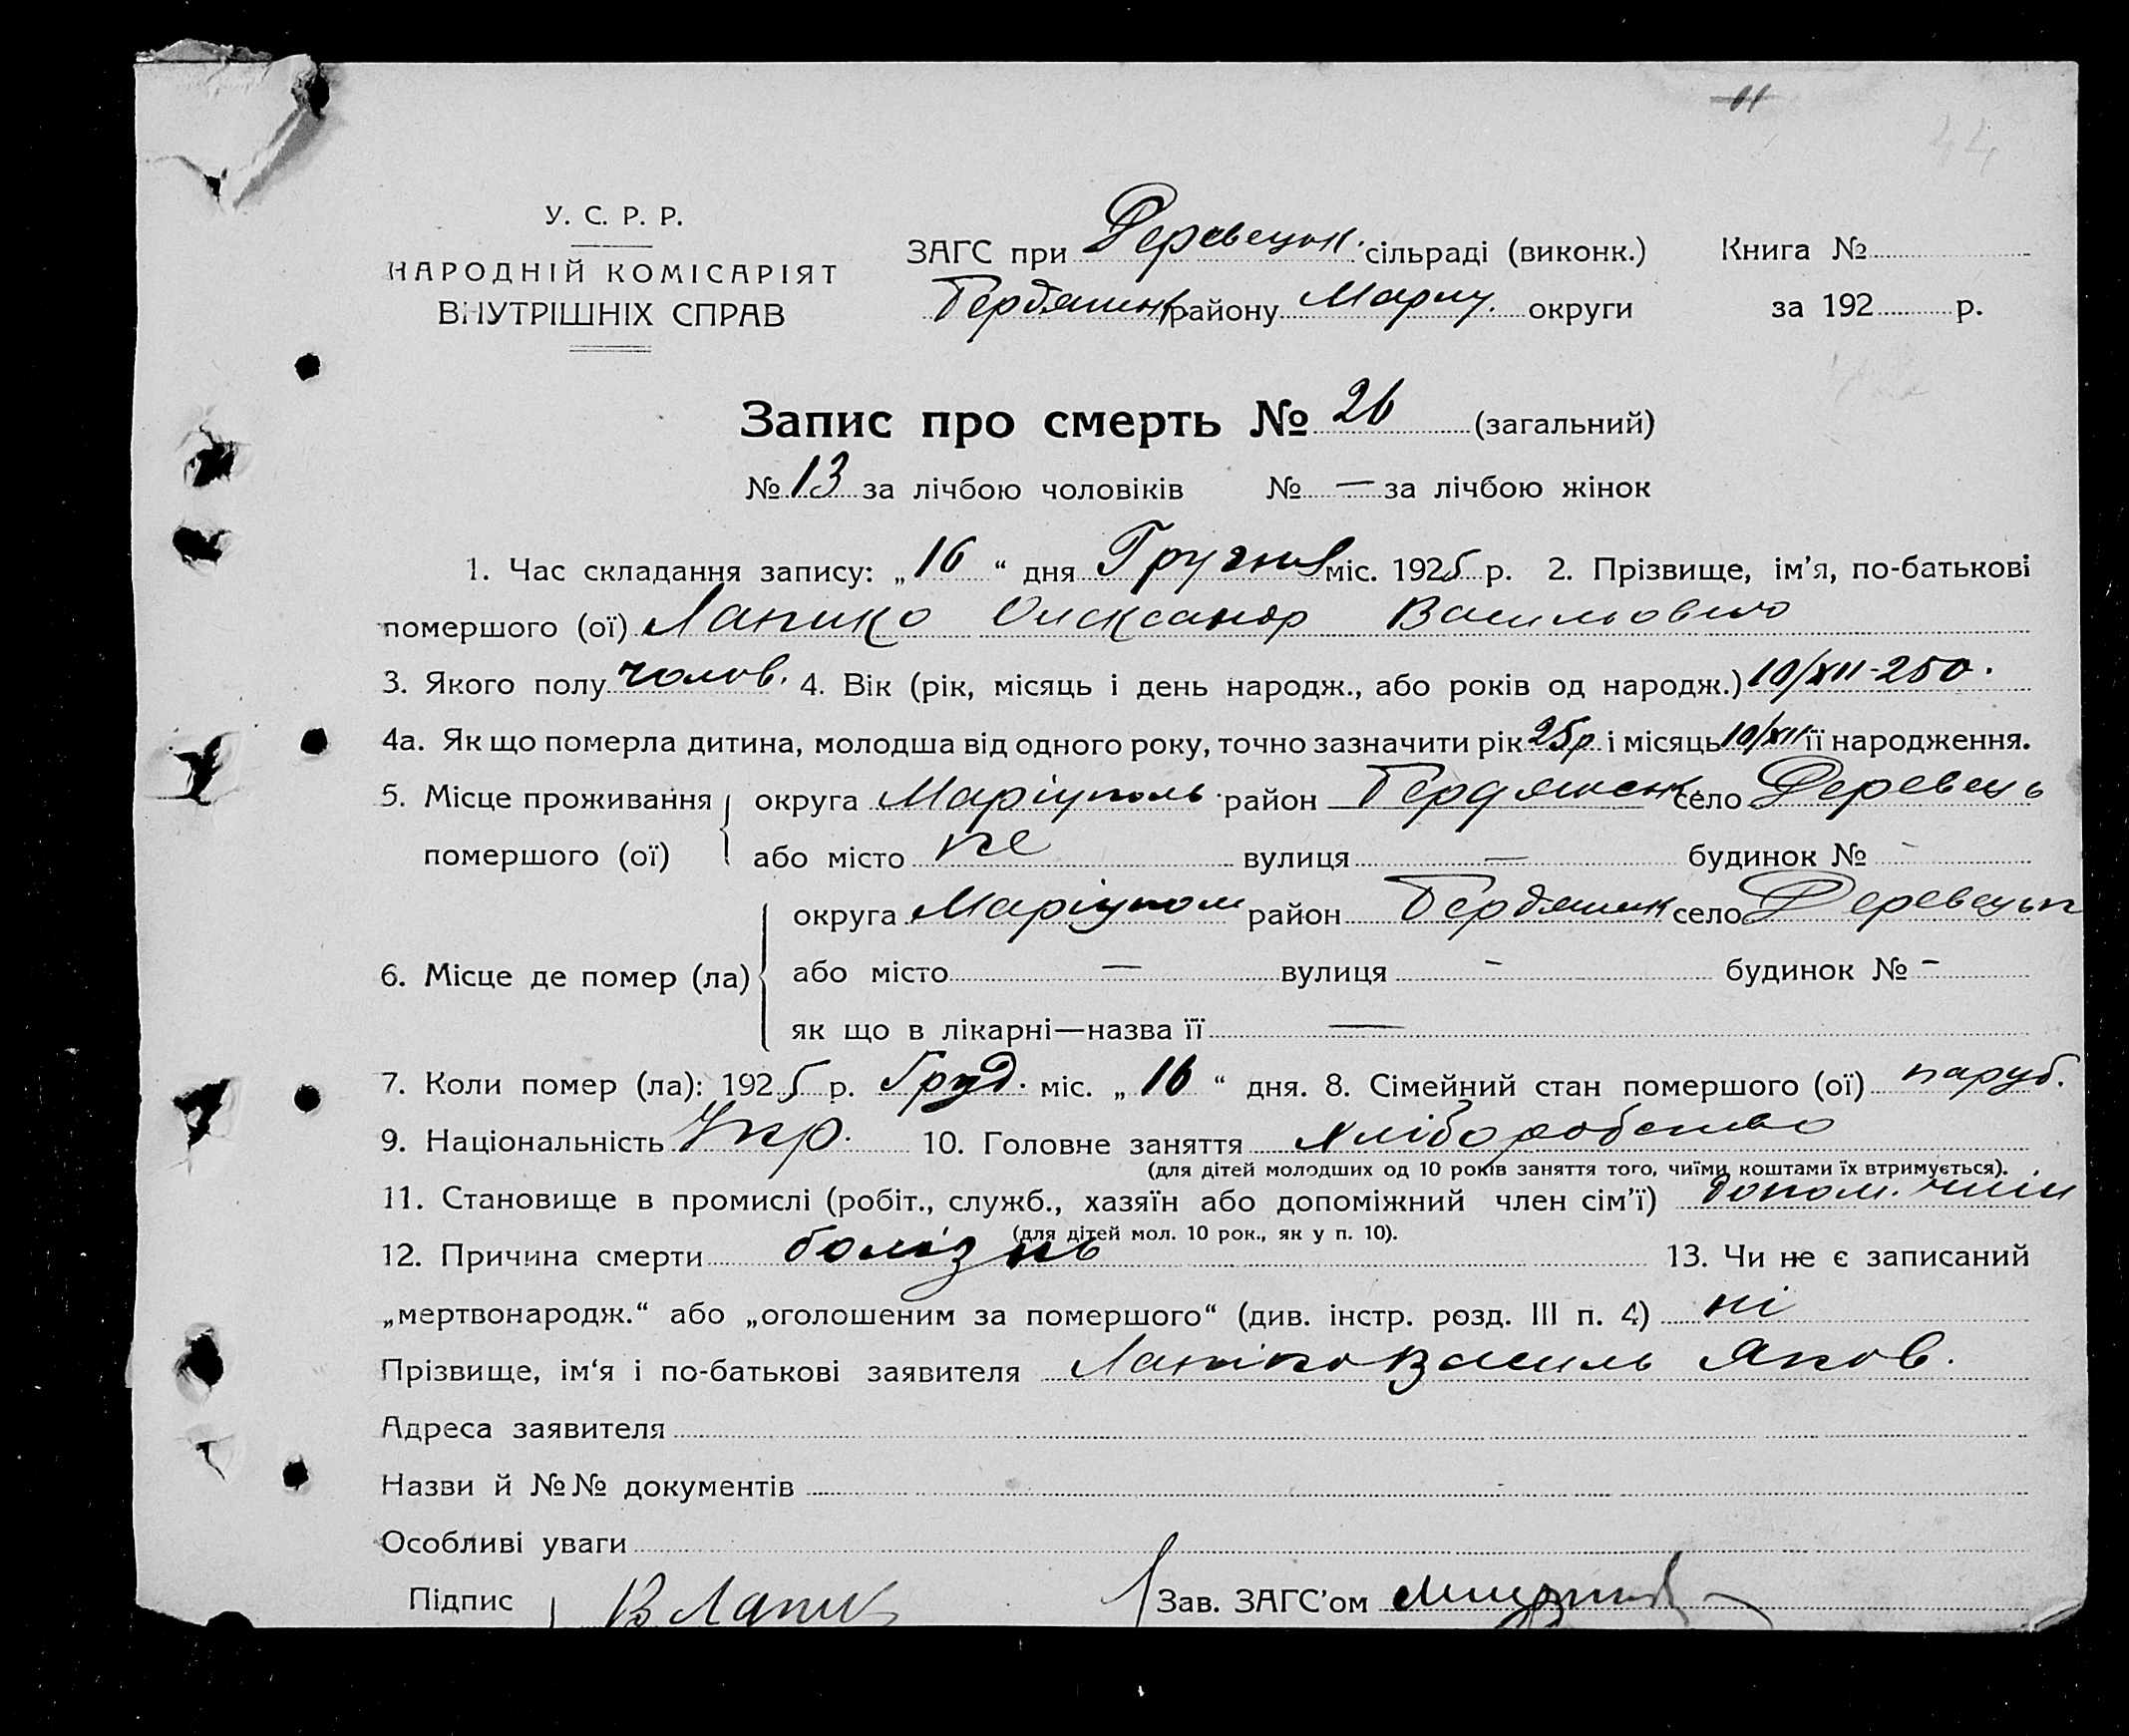 11
44
У. С. Р. Р.
НАРОДНІЙ КОМІСАРІЯТ
ВНУТРІШНІХ СПРАВ
ЗАГС при Деревецьк. сільраді (виконк.)
Бердянськ району Маріу. округи
Книга №
за 192 р.
Запис про смерть № 26 (загальний)
№ 13 за лічбою чоловіків № — за лічбою жінок
1. Час складання запису: „16“ дня Грудня міс. 1925 р. 2. Прізвище, ім’я, по-батькові
помершого (ої) Лапико Олександр Васильович
3. Якого полу чолов. 4. Вік (рік, місяць і день народж., або років од народж.) 10/XII-25
4а. Як що померла дитина, молодша від одного року, точно зазначити рік 25 р. і місяць 10/XII її народження.
5. Місце проживання помершого (ої) округа Маріуполь район Бердянськ село Деревець
або місто не вулиця — будинок № -
6. Місце де помер (ла) округа Маріупол район Бердянськ село Деревецьк
або місто — вулиця - будинок № -
як що в лікарні—назва її —
7. Коли помер (ла): 1925 р. Груд. міс. „16“ дня. 8. Сімейний стан помершого (ої) паруб.
9. Національність Укр. 10. Головне заняття хліборобство
(для дітей молодших од 10 років заняття того, чиїми коштами їх втримується).
11. Становище в промислі (робіт., служб., хазяїн або допоміжний член сім’ї) допом. член
(для дітей мол. 10 рок., як у п. 10).
12. Причина смерти болізнь 13. Чи не є записаний
„мертвонародж.“ або „оголошеним за помершого“ (див. інстр. розд. III п. 4) ні
Прізвище, ім‘я і по-батькові заявителя Лапіко Василь Яков.
Адреса заявителя
Назви й №№ документів
Особливі уваги
Підпис В Лапик Зав. ЗАГС’ом